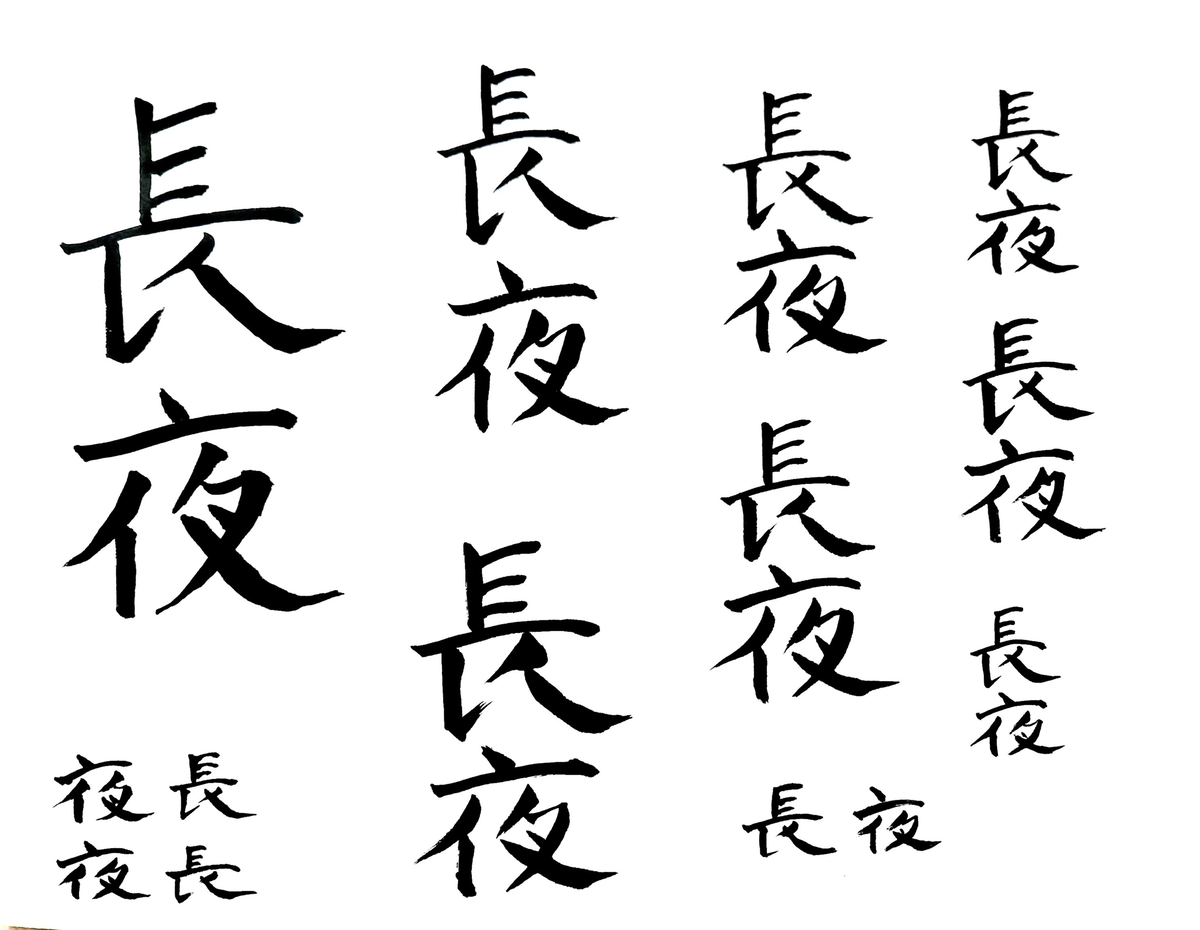 長夜
長夜
長夜
長夜
長夜
長夜
長夜
長夜
長夜
長夜
長夜